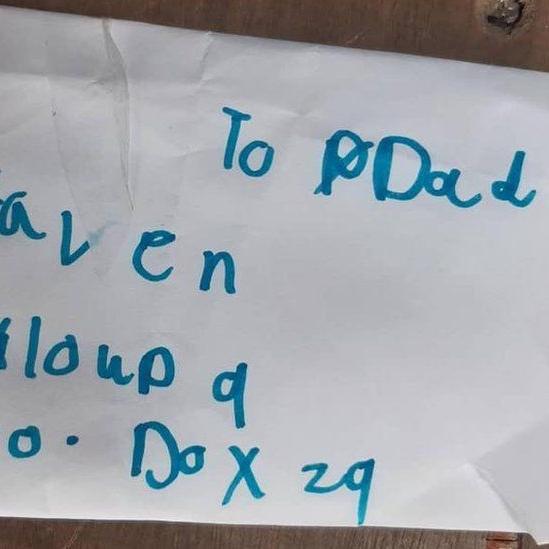 To Dad
aven
loud 9
o. Box 29